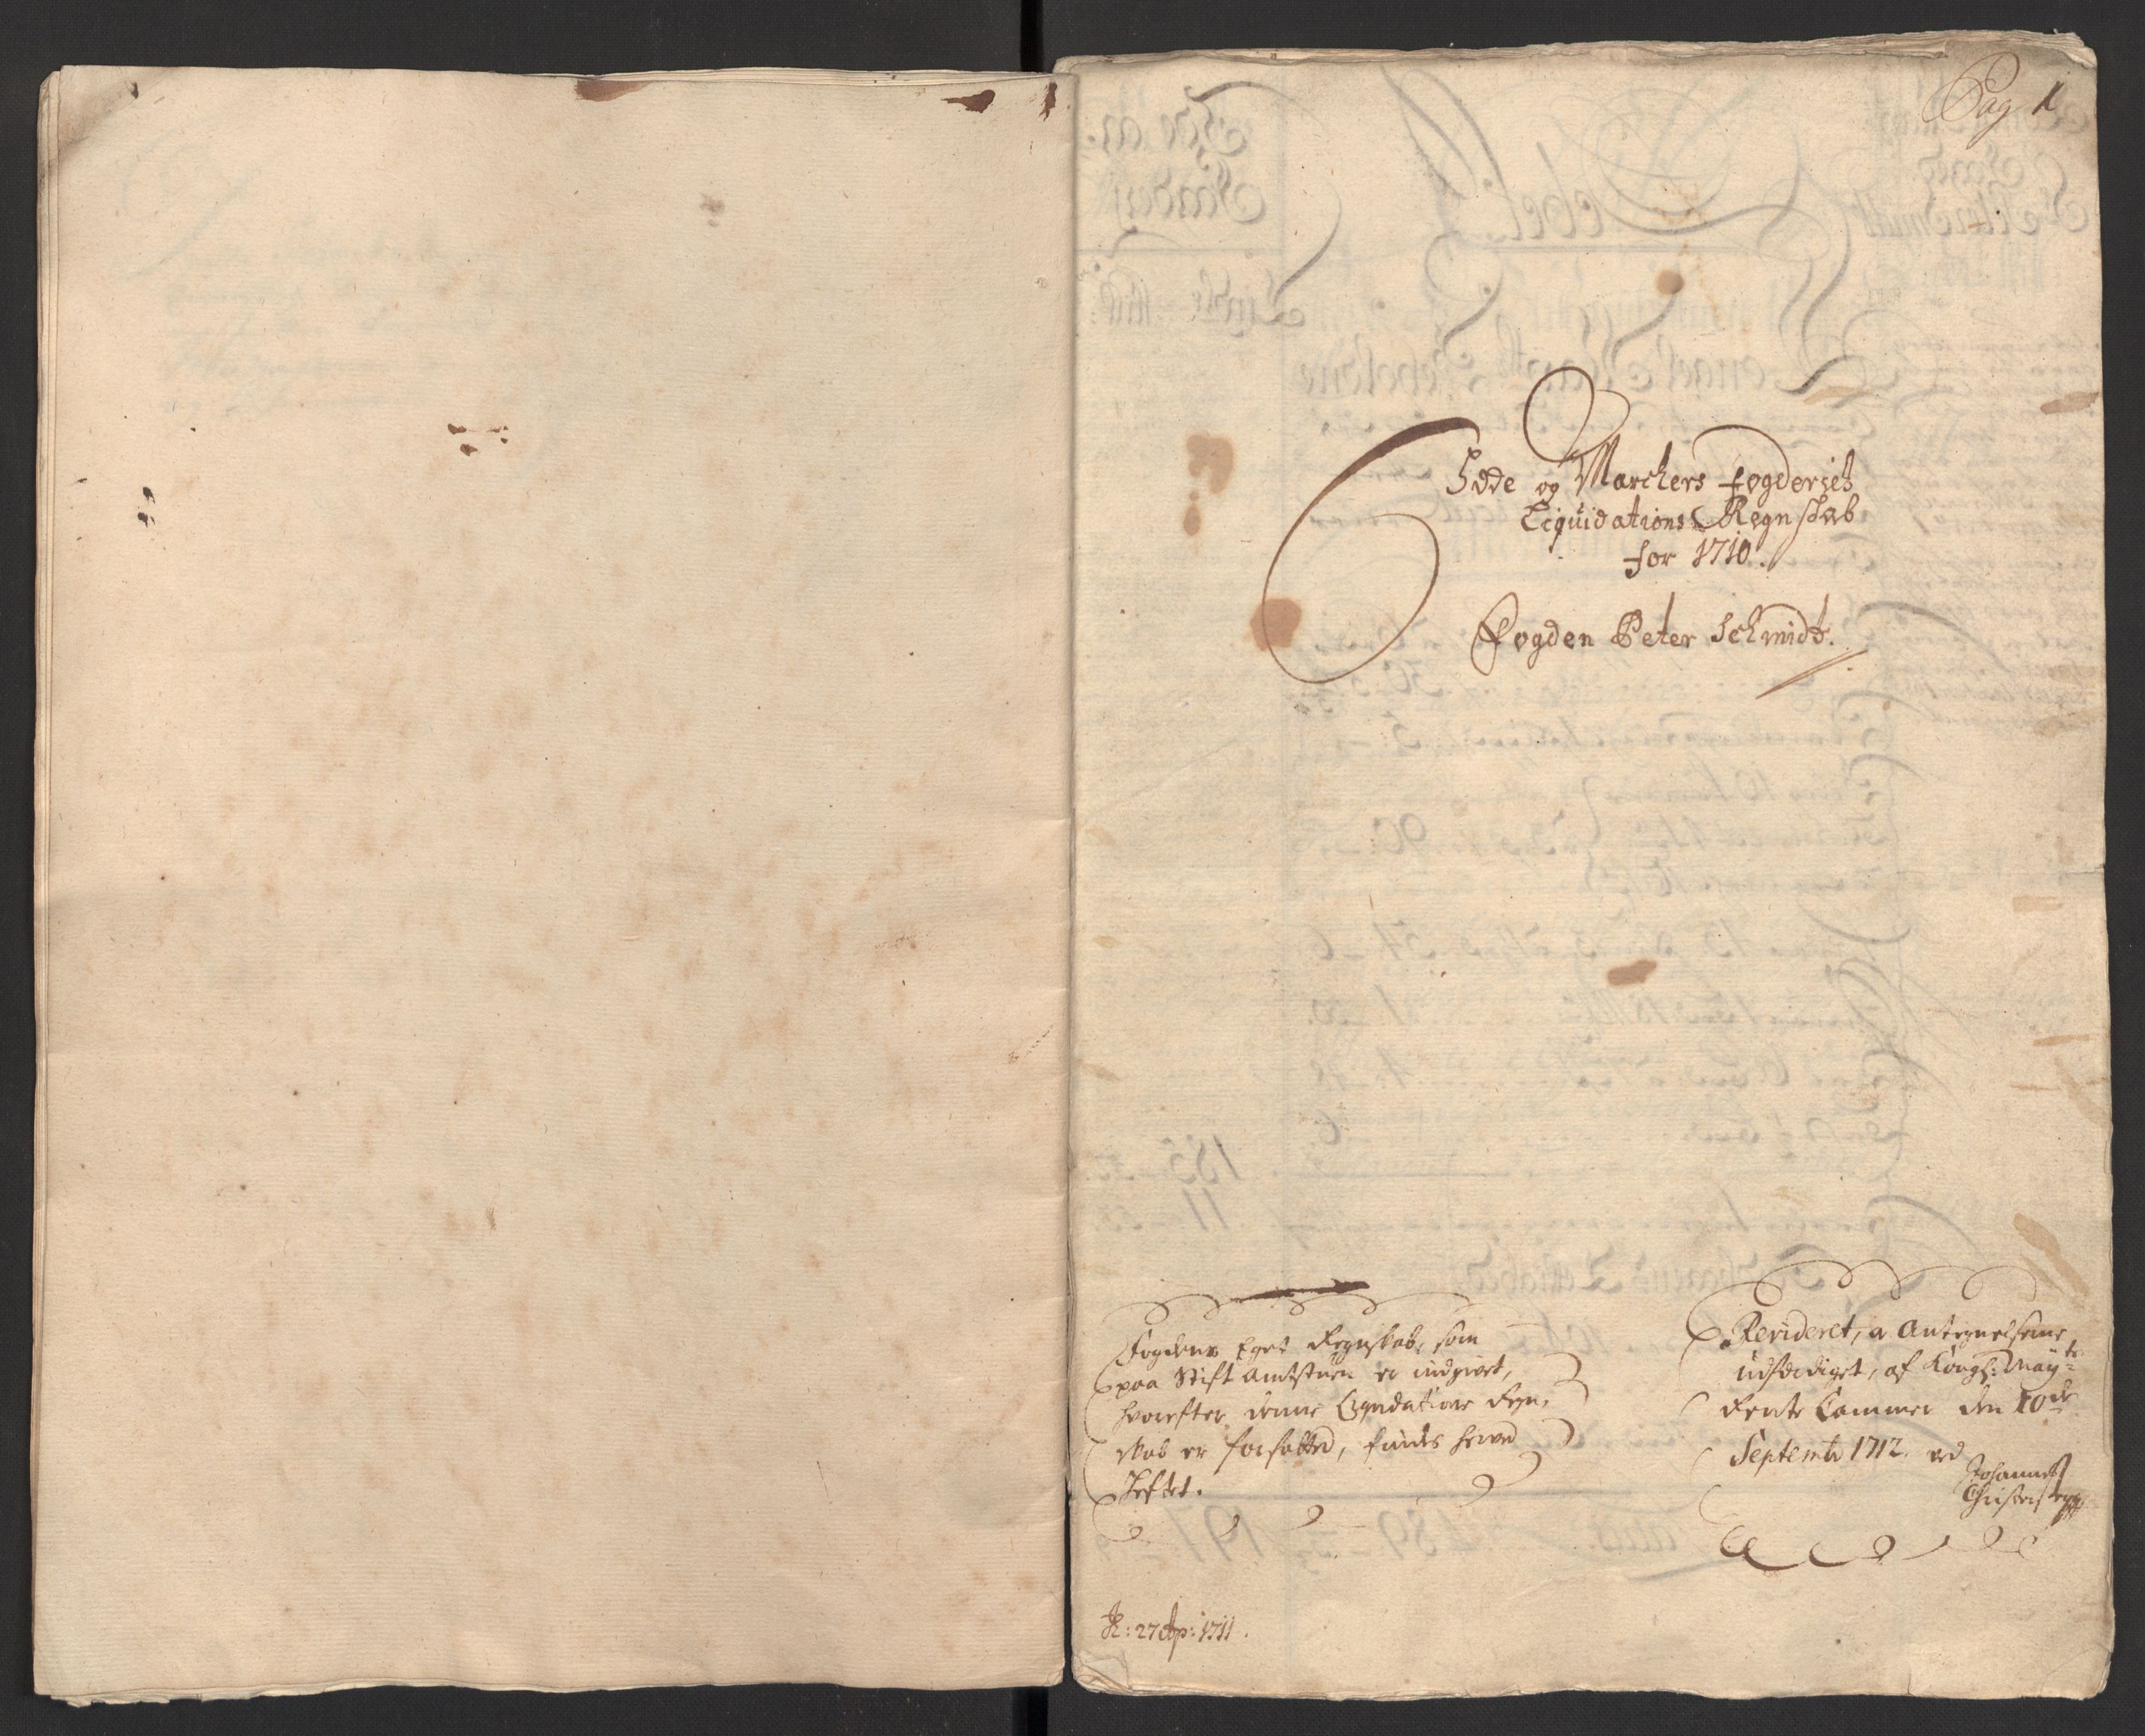 Pag 1
Idde og Marckers fogderies
Liquidations Regnskab
for 1710.
Fogden Peter Schmidt.
Fogdens Eget Regnskab, som
paa Stift Amtstuen er indgivet,
hvorefter denne Liqvidations Regn,
skab er forfatted, findes herved
Heftet.
Revideret, a Antegnelserne
udstediget, af Kongl: May:ts
Rente Cammer den 10de
Septembr 1712. ved
Johannes
R: 27 Ap: 1711.